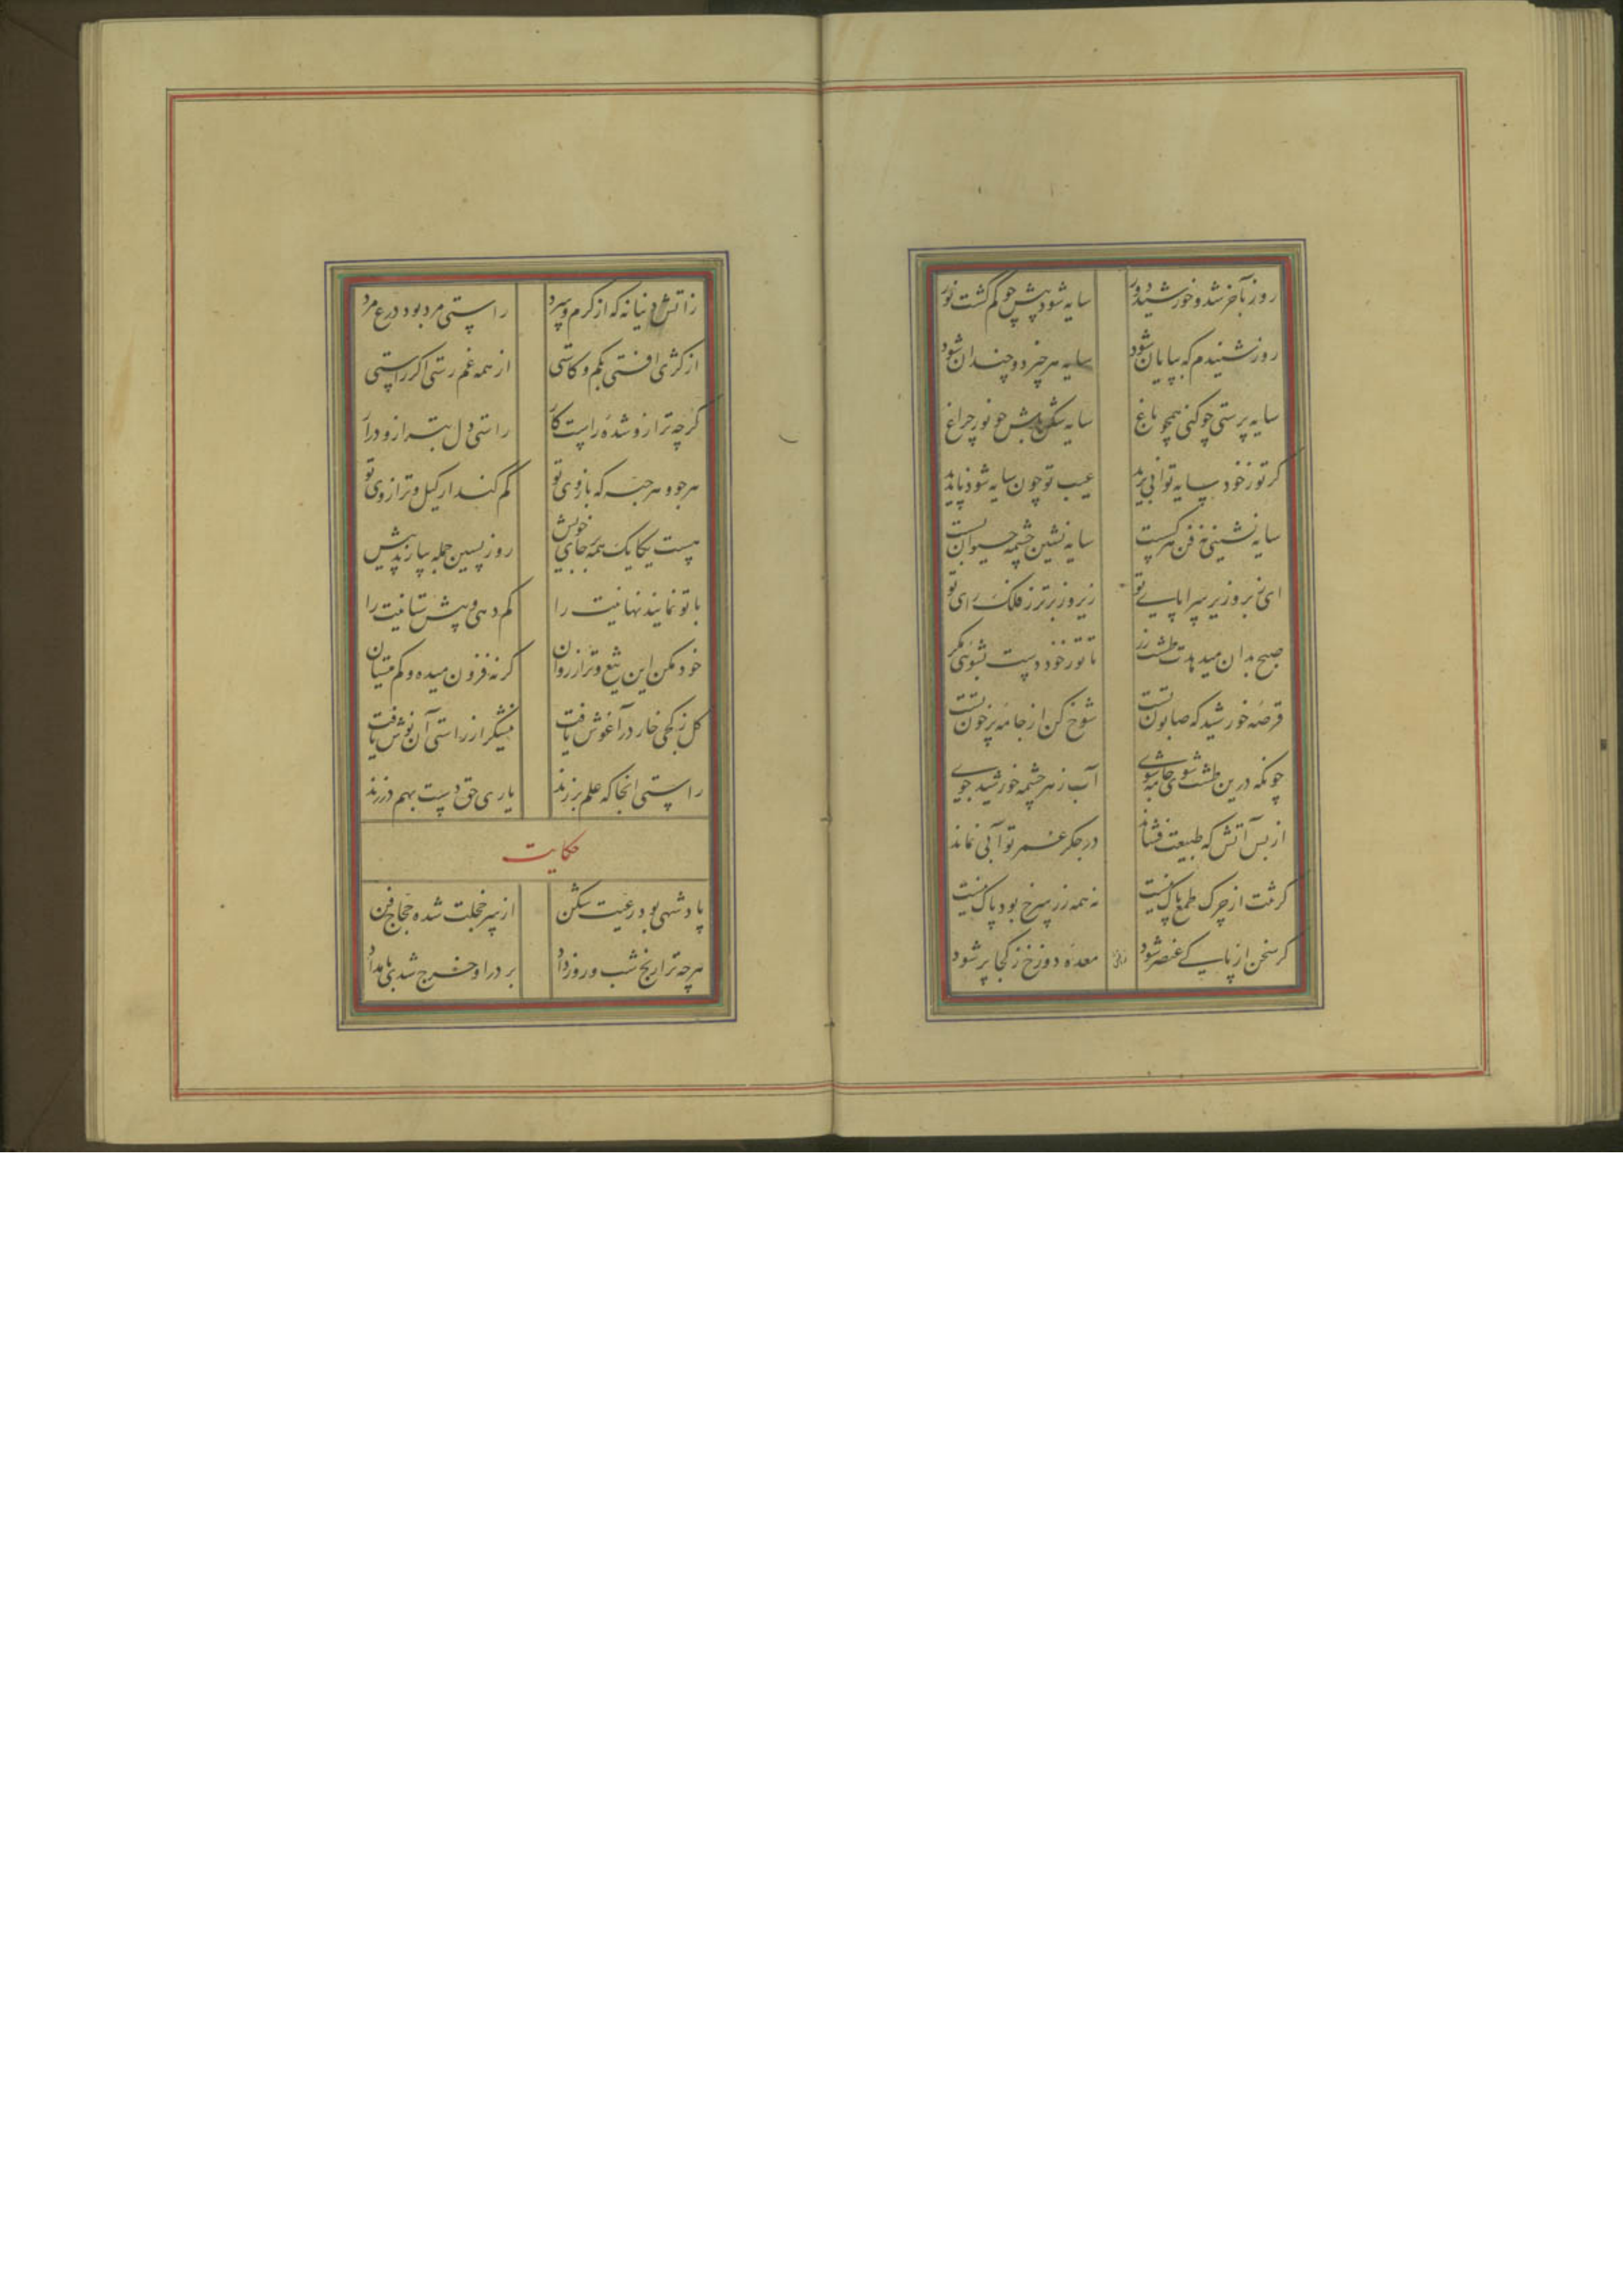 روز بآخر شد و خورشید دور سایه شود بیش چو کم گشت نور
روز شنیدم که بپایان شود سایه هر چیز دو چندان شود
سایه پرستی چو کنی همچو باغ سایه شکن باش چو نور چراغ
کر تو ز خود سایه توانی برید عیب تو چون سایه شود ناپدید
سایه نشینی نه فن هر کست سایه نشین چشمه حیوان بست
ای ز بر و زیر سراپای تو زیر و زبرتر ز فلک رای تو
صبح بدان میدهدت طشت زر تا تو ز خود دست بشوئی مکر
قرصه خورشید که صابون تست شوخ کن از جامه پر خون تست
چونکه درین طشت شوی جامه شوی آب ز سر چشمه خورشید جوی
از بس آتش که طبیعت فشاند در جکر عمر تو آبی نماند
کر تنت از چرک طمع پاک نیست نه همه زر سرخ بود پاک نیست
کر سخن از پاکی عنصر شود معده دوزخ ز کجا پر شود
زاتش دنیا نه که از کرم و سرد راستی مرد بود درع مرد
از کژی افتی بکم و کاستی از همه غم رستی اکر راستی
کرچه ترازو شده راست کار راستی دل بترازو درآر
هر جو و هر حبه که بازوی تو کم کند از کیل و ترازوی تو
هست یکایک همه بر جای خویش روز پسین جمله بیارند پیش
با تو نمایند نهانیت را کم دهی و بیش ستانیت را
خود مکن این تیغ و ترازو روان کر نه فزون میده و کم میستان
کل ز کجی خار در آغوش یافت نیشکر از راستی آن نوش یافت
راستی انجا که علم بر زند یاری حق دست بهم در زند
حکایت
پادشهی بود رعیت شکن از سر خجلت شده حجاج فن
هرچه تراریخ شب و روز زاد بر در او خرج شدی بامداد